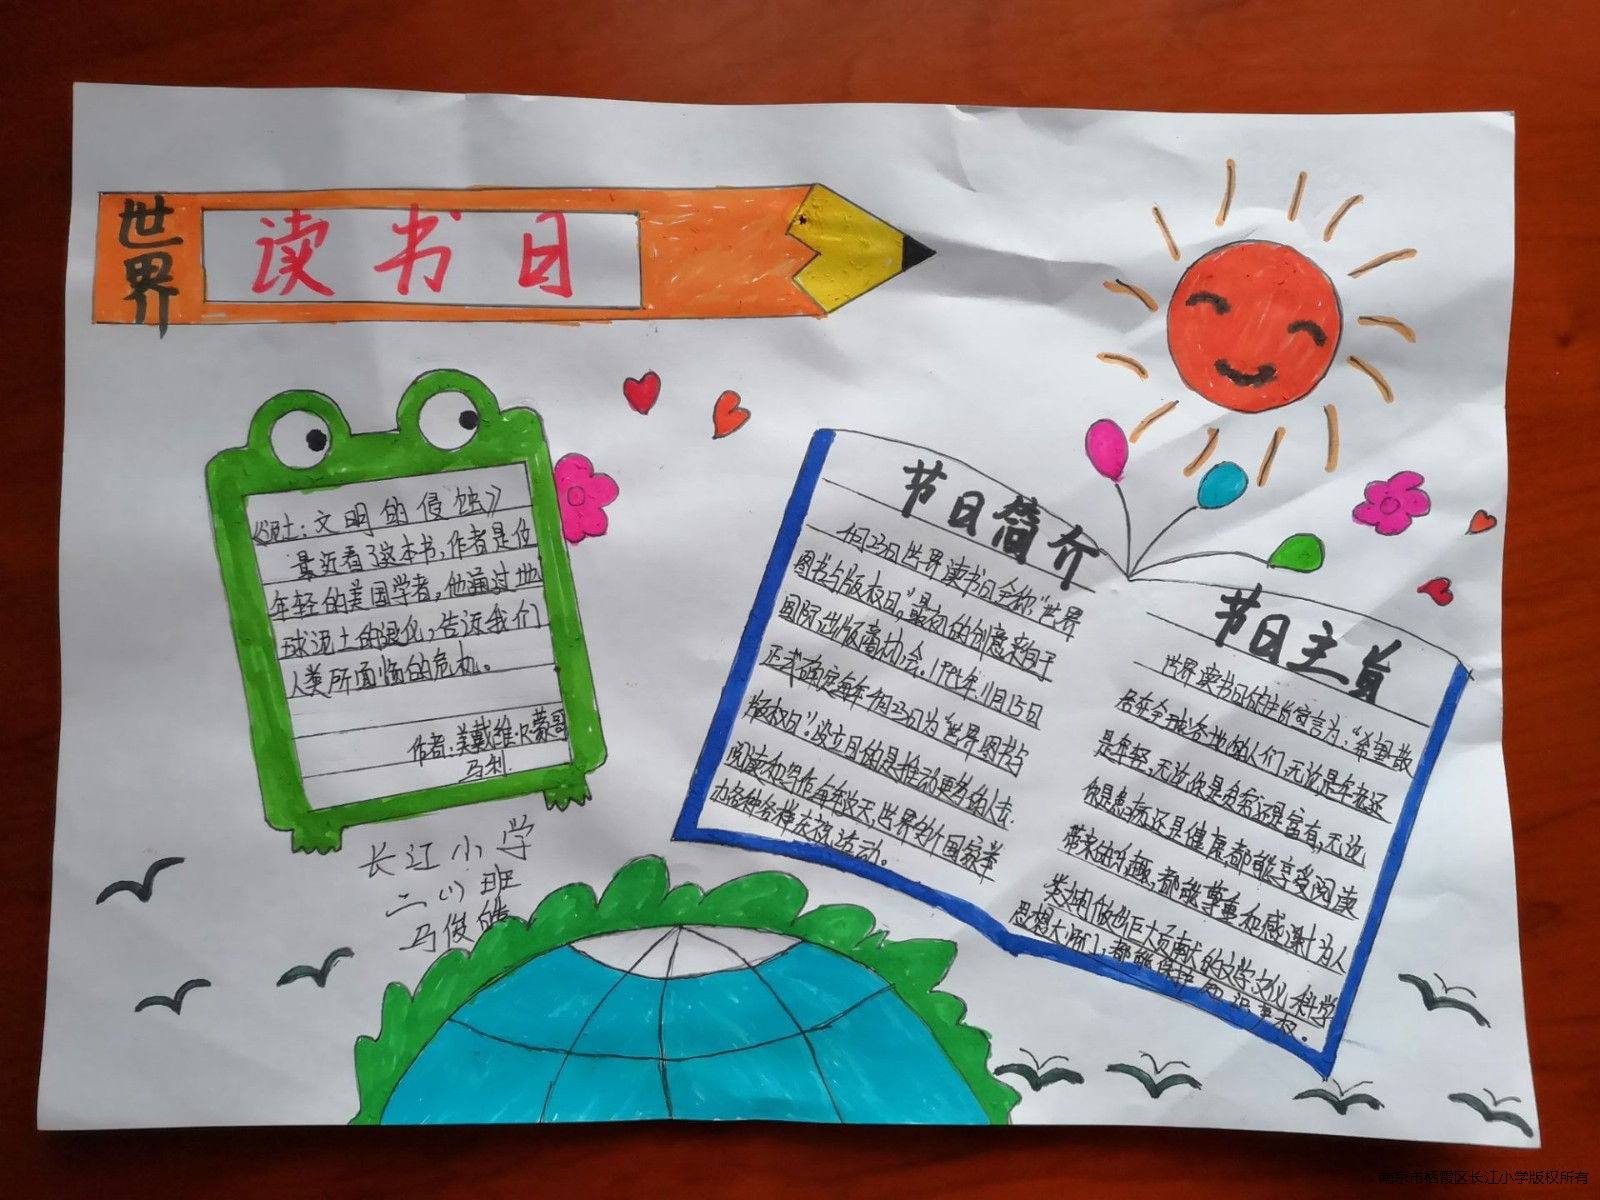 世界
读书日
《泥土:文明的侵蚀》
最近看了这本书,作者是位
年轻的美国学者,他通过地
球泥土的退化,告诉我们
人类所面临的危机。
作者:美戴维·R蒙哥
马利
长江小学
二(1)班
马俊皓
节日简介
4月23日世界读书日全称:"世界
图书与版权日",最初的创意来自于
国际出版商协会。1995年11月15日
正式确定每年4月23日为"世界图书与
版权日"。设立目的是推动更多的人去
阅读和写作每年这天,世界的个国家举
办各种各样庆祝活动。
节日主旨
世界读书日的主旨宣言为:"希望散
居在全球各地的人们,无论是年老还
是年轻,无论你是贫穷还是富有,无论
你是患病还是健康,都能享受阅读
带来的乐趣,都能尊重和感谢为人
类作出巨大贡献的文学、文化、科学
思想大师们,都能保护知识产权。
南京市栖霞区长江小学版权所有